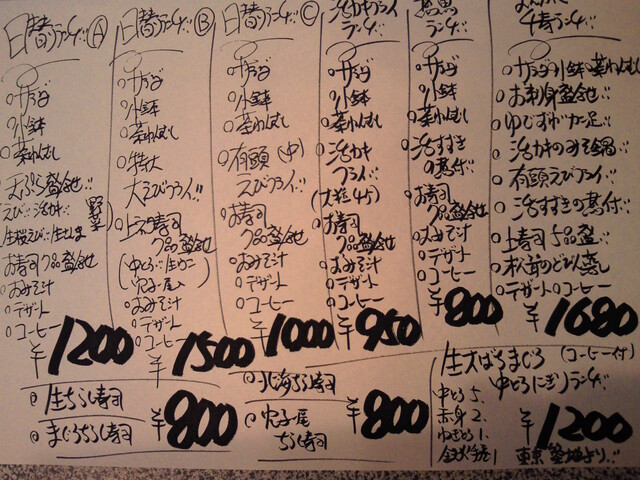 日替ランチ Ⓐ
○サラダ
○小鉢
○茶わんむし
天ぷら盛合せ
えび 活カキ 野菜
生桜えび 生しらす
お寿司7品盛合せ
○おみそ汁
○デザート
○コーヒー
¥1200
日替ランチ Ⓑ
○サラダ
○小鉢
○茶わんむし
○特大
大えびフライ
○上寿司
7品盛合せ
(中とろ 生ウニ
穴子一尾入)
○おみそ汁
○デザート
○コーヒー
¥1500
日替ランチ Ⓒ
○サラダ
○小鉢
○茶わんむし
○有頭(中)
えびフライ
○お寿司
7品盛合せ
○おみそ汁
○デザート
○コーヒー
¥1000
活カキフライ
ランチ
○サラダ
○小鉢
○茶わんむし
○活カキ
フライ
(大粒4ケ)
○お寿司
7品盛合せ
○おみそ汁
○デザート
○コーヒー
¥950
ランチ
○サラダ
○小鉢
○茶わんむし
○活すずき
の煮付
○お寿司
7品盛合せ
○おみそ汁
○デザート
○コーヒー
¥800
ランチ
○サラダ 小鉢 茶わんむし
○お刺身盛合せ
○ゆでずわいガニ足
○活カキのみそ鍋
○有頭えびフライ
○活すずきの煮付
○上寿司5品盛
○松前のどびん蒸し
○デザート○コーヒー
¥1680
○生ちらし寿司
○まぐろちらし寿司
¥800
○北海ちらし寿司
○穴子一尾
ちらし寿司
¥800
生本ばちまぐろ (コーヒー付)
中とろにぎりランチ
中とろ5、
赤身2、
ねぎとろ1、
¥1200
東京 築地より